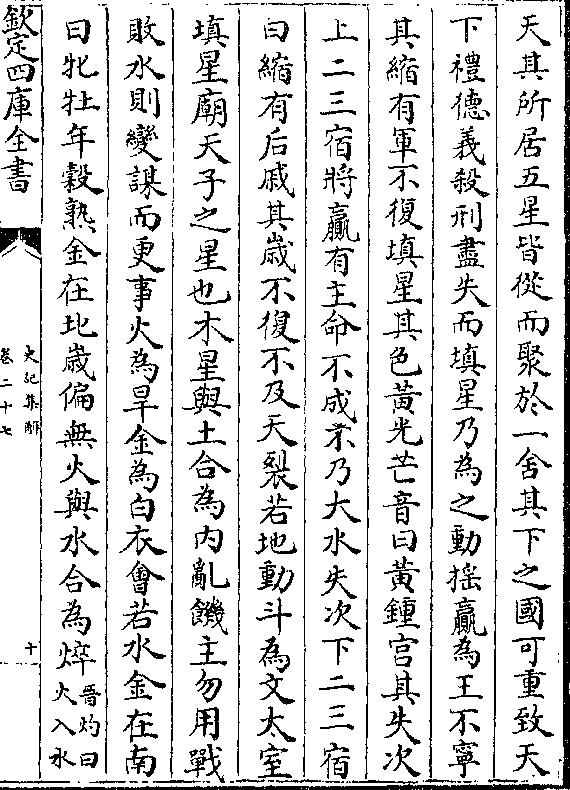 天其所居五星皆從而聚於一舍其下之國可重致天
下禮德義殺刑盡失而填星乃為之動揺贏為王不寧
其縮有軍不復填星其色黃光芒音曰黃鍾宮其失次
上二三宿將贏有主命不成不乃大水失次下二三宿
曰縮有后戚其歲不復不及天裂若地動斗為文太室
填星廟天子之星也木星與土合為内亂饑主勿用戰
敗水則變謀而更事火為旱金為白衣會若水金在南
曰牝牡年穀熟金在北歲偏無火與水合為焠晋灼曰
火入水
欽定四庫全書
史記集解
卷二十七
十